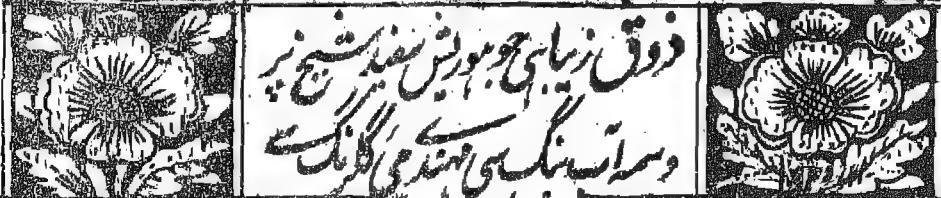 ذوق زیبا ہی جو ہو ریش سفید شیخ پر
وسمہ آب بنگ سی مہندی مَی گلرنگ سے